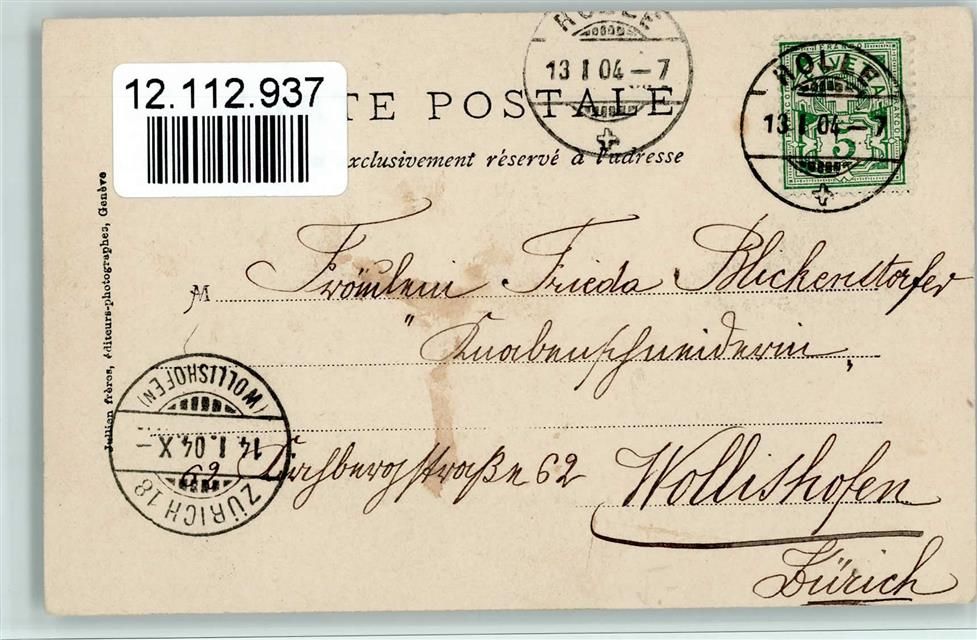 12.112.937
TE POSTALE
xclusivement réservé à l'adresse
ROLLE
13 I 04 – 7
ROLLE
13 I 04 – 7
FRANCO
5
Jullien frères, éditeurs-photographes, Genève
M
Fräulein Frieda Blickenstorfer
" Knabenschneiderin "
62 Kirchbergstraße 62 Wollishofen
Zürich
(WOLLISHOFEN)
14.I.04.X–
ZÜRICH 18